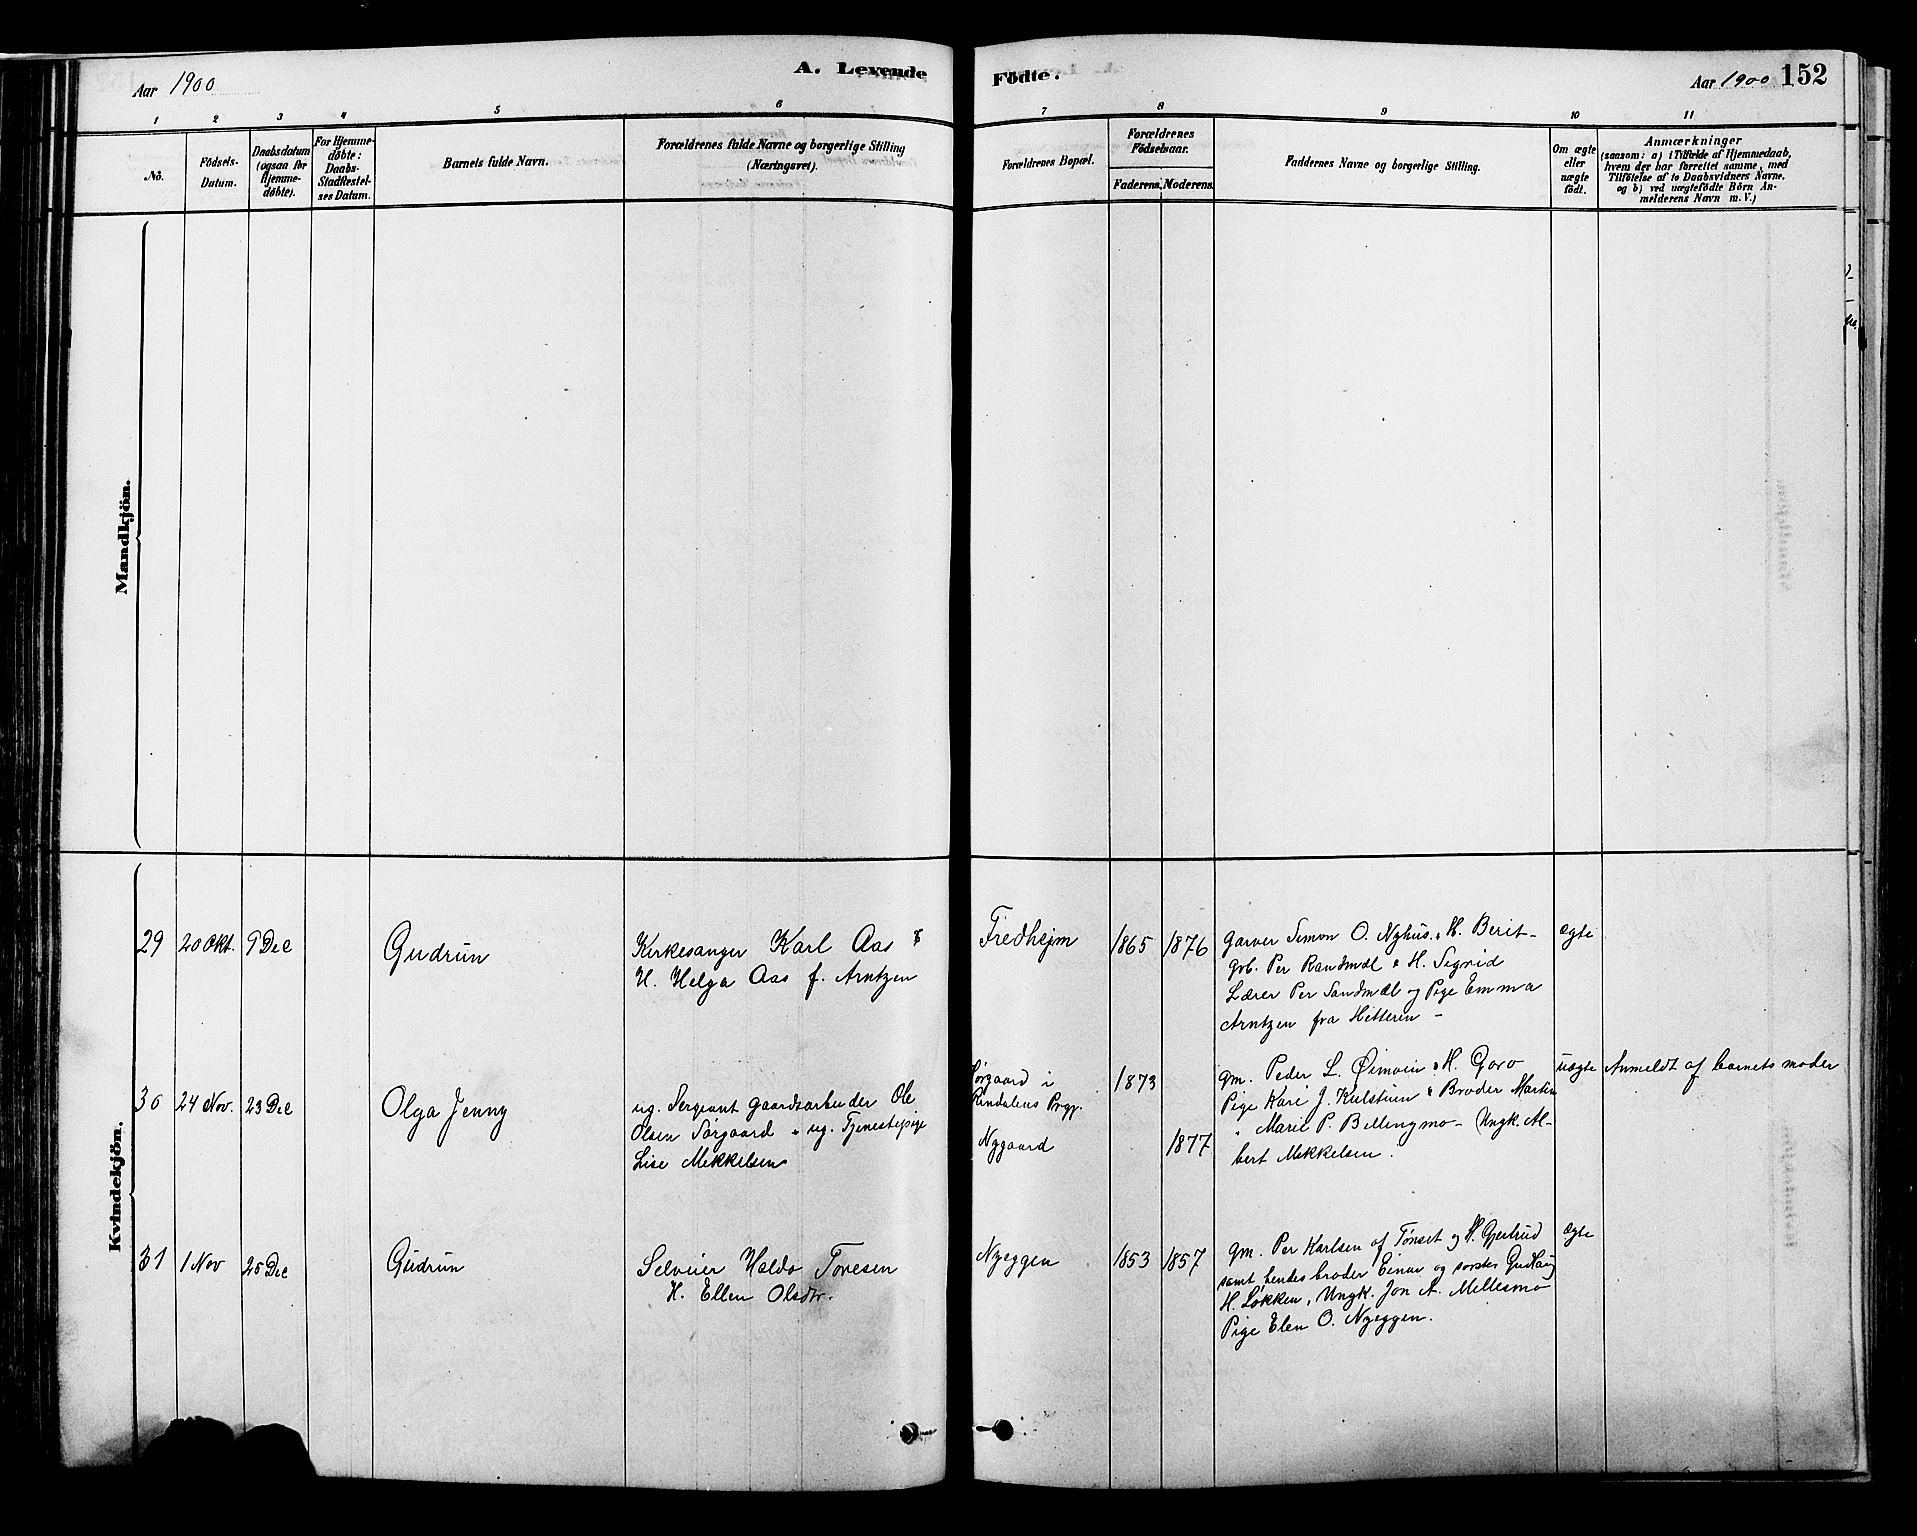 Aar 1900
A. Levende
Födte.
Aar 1900 152
1 2 3 4 5 6 7 8 9 10 11
No.
Födsels-Datum.
Daabsdatum (ogsaa for Hjemme-döbte).
For Hjemme-döbte: Daabs-Stadfæstel-ses Datum.
Barnets fulde Navn.
Forældrenes fulde Navne og borgerlige Stilling (Næringsvei).
Forældrenes Bopæl.
Forældrenes Födselsaar.
Faderens. Moderens.
Faddernes Navne og borgerlige Stilling.
Om ægte eller uægte födt.
Anmærkninger
(saasom: a) i Tilfælde af Hjemmedaab,
hvem der har forrettet samme, med
Tilföielse af to Daabsvidners Navne,
og b) ved uægtefödte Börn An-
melderens Navn m. V.)
Mandkjön.
Kvindekjön.
29 20 Okt. 9 Dec Gudrun
Kirkesanger Karl Aas &
H. Helga Aas f. Arntzen
Fredhejm 1865 1876
Garver Simon O. Nyhus & H. Berit -
grb. Per Randmæl & H. Sigrid
Lærer Per Sandmæl og Pige Emma
Arntzen fra Hitteren -
ægte
30 24 Nov. 23 Dec Olga Jenny
ug. Sergeant gaardsarbeider Ole
Olsen Sørgaard & ug. Tjenestepige
Lise Mikkelsen
Sørgaard i
Rindalens Prgj.
Nygaard
1873
1877
gm. Peder L. Øimoin & H. Goro
Pige Kari J. & Broder Martin
" Marie P. Bellingmo - Ungk. Al-
bert Mikkelsen.
uægte
Anmeldt af barnets moder
31 1 Nov 25 Dec Gudrun
Selveier Haldo Toresen
H. Ellen Olsdtr.
Nyeggen 1853 1857
gm. Per Karlsen af Tønset og H. Gjertrud
samt hendes broder Einar og søster Gudlaug
H. Løkken, Ungk. Jon A. Mellesmo
Pige Elen O. Nyeggen.
ægte